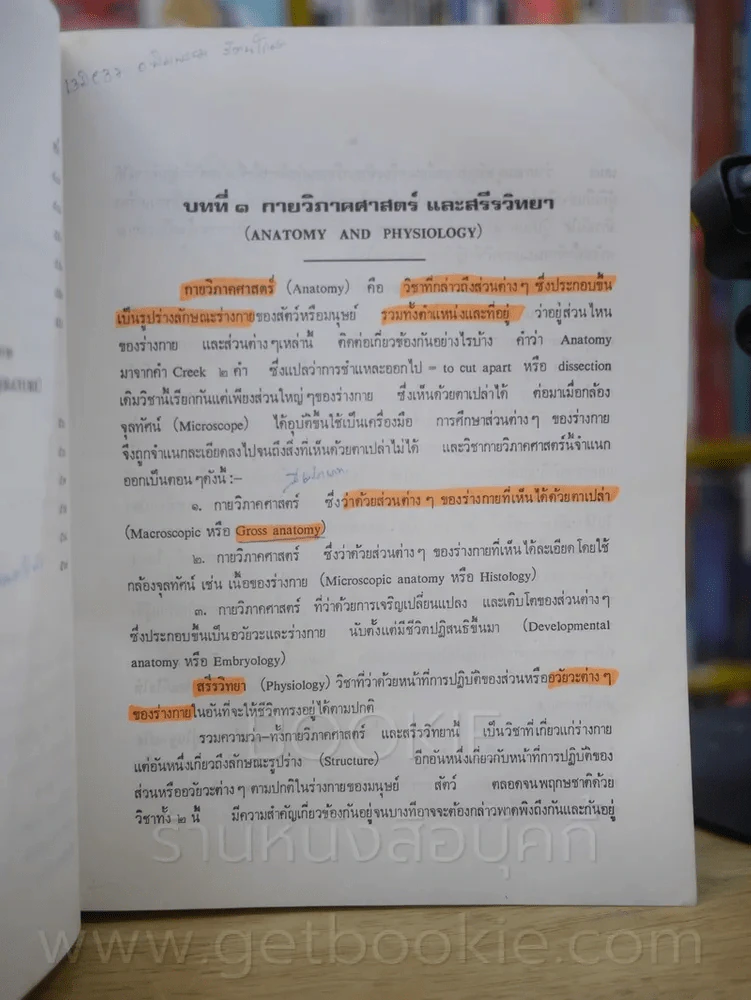 บทที่ ๑ กายวิภาคศาสตร์ และสรีรวิทยา
(ANATOMY AND PHYSIOLOGY)
กายวิภาคศาสตร์ (Anatomy) คือ วิชาที่กล่าวถึงส่วนต่าง ๆ ซึ่งประกอบขึ้น
เป็นรูปร่างลักษณะร่างกายของสัตว์หรือมนุษย์ รวมทั้งตำแหน่งและที่อยู่ ว่าอยู่ส่วนไหน
ของร่างกาย และส่วนต่าง ๆ เหล่านี้ ติดต่อเกี่ยวข้องกันอย่างไรบ้าง คำว่า Anatomy
มาจากคำ Creek ๒ คำ ซึ่งแปลว่าการชำแหละออกไป = to cut apart หรือ dissection
เดิมวิชานี้เรียกกันแต่เพียงส่วนใหญ่ ๆ ของร่างกาย ซึ่งเห็นด้วยตาเปล่าได้ ต่อมาเมื่อกล้อง
จุลทัศน์ (Microscope) ได้อุบัติขึ้นใช้เป็นเครื่องมือ การศึกษาส่วนต่าง ๆ ของร่างกาย
จึงถูกจำแนกละเอียดลงไปจนถึงสิ่งที่เห็นด้วยตาเปล่าไม่ได้ และวิชากายวิภาคศาสตร์นี้จำแนก
ออกเป็นตอน ๆ ดังนี้ :–
๑. กายวิภาคศาสตร์ ซึ่งว่าด้วยส่วนต่าง ๆ ของร่างกายที่เห็นได้ด้วยตาเปล่า
(Macroscopic หรือ Gross anatomy)
๒. กายวิภาคศาสตร์ ซึ่งว่าด้วยส่วนต่าง ๆ ของร่างกายที่เห็นได้ละเอียดโดยใช้
กล้องจุลทัศน์ เช่น เนื้อของร่างกาย (Microscopic anatomy หรือ Histology)
๓. กายวิภาคศาสตร์ ที่ว่าด้วยการเจริญเปลี่ยนแปลง และเติบโตของส่วนต่าง ๆ
ซึ่งประกอบขึ้นเป็นอวัยวะและร่างกาย นับตั้งแต่มีชีวิตปฏิสนธิขึ้นมา (Developmental
anatomy หรือ Embryology)
สรีรวิทยา (Physiology) วิชาที่ว่าด้วยหน้าที่การปฏิบัติของส่วนหรืออวัยวะต่าง ๆ
ของร่างกายในอันที่จะให้ชีวิตทรงอยู่ได้ตามปกติ
รวมความว่า–ทั้งกายวิภาคศาสตร์ และสรีรวิทยานี้ เป็นวิชาที่เกี่ยวแก่ร่างกาย
แต่อันหนึ่งเกี่ยวถึงลักษณะรูปร่าง (Structure) อีกอันหนึ่งเกี่ยวกับหน้าที่การปฏิบัติของ
ส่วนหรืออวัยวะต่าง ๆ ตามปกติในร่างกายของมนุษย์ สัตว์ ตลอดจนพฤกษชาติด้วย
วิชาทั้ง ๒ นี้ มีความสำคัญเกี่ยวข้องกันอยู่จนบางทีอาจจะต้องกล่าวพาดพิงถึงกันและกันอยู่
BOOKIE
ร้านหนังสือบุคกี้
www.getbookie.com